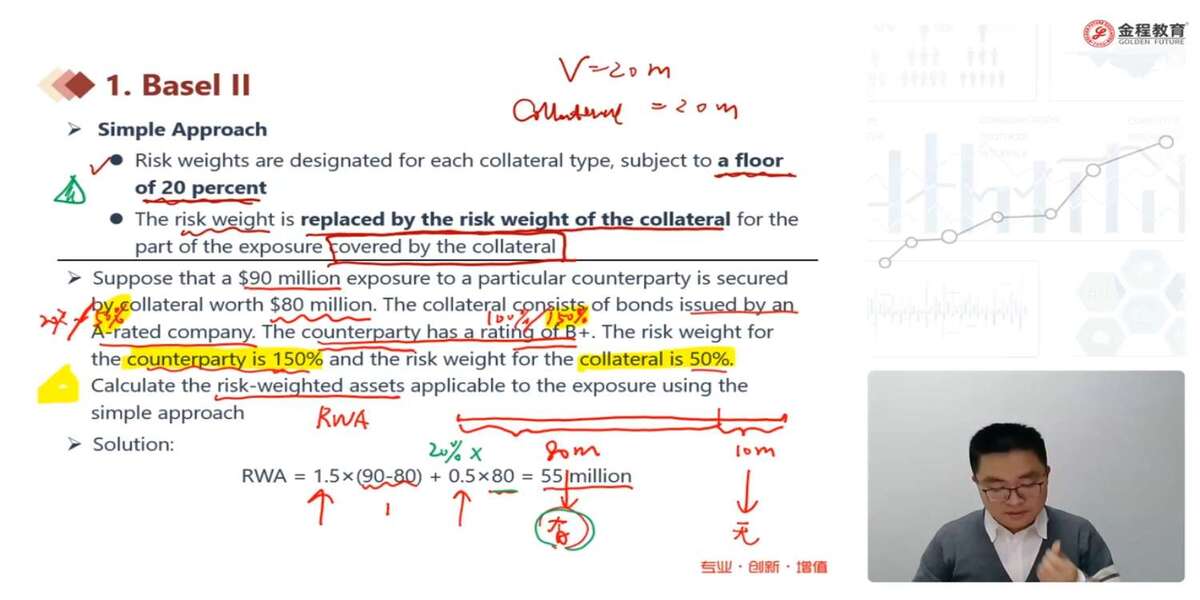 金程教育
GOLDEN FUTURE
V=20m
1. Basel II
Collateral = 20m
Simple Approach
Risk weights are designated for each collateral type, subject to a floor
of 20 percent
The risk weight is replaced by the risk weight of the collateral for the
part of the exposure covered by the collateral
Suppose that a $90 million exposure to a particular counterparty is secured
by collateral worth $80 million. The collateral consists of bonds issued by an
20% 50% 100% / 150%
A-rated company. The counterparty has a rating of B+. The risk weight for
the counterparty is 150% and the risk weight for the collateral is 50%.
Calculate the risk-weighted assets applicable to the exposure using the
simple approach
RWA
Solution:
20% x 80m 10m
RWA = 1.5×(90-80) + 0.5×80 = 55 million
有 无
专业·创新·增值